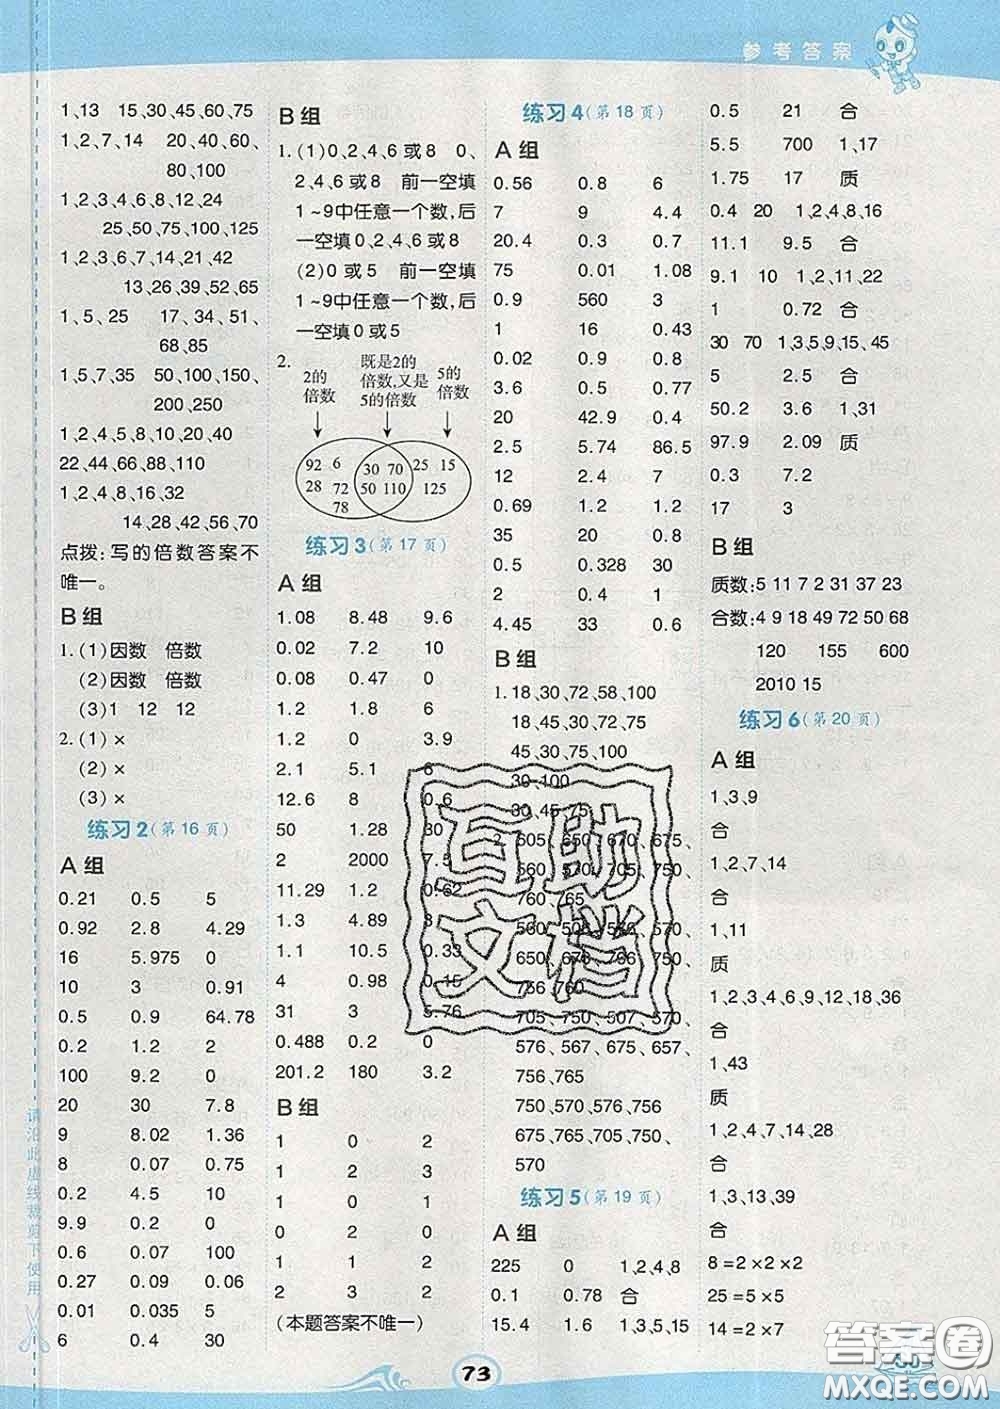 参考答案
1、13 15、30、45、60、75
1、2、7、14 20、40、60、
80、100
1、2、3、4、6、8、12、24
25、50、75、100、125
1、2、3、6、7、14、21、42
13、26、39、52、65
1、5、25 17、34、51、
68、85
1、5、7、35 50、100、150、
200、250
1、2、4、5、8、10、20、40
22、44、66、88、110
1、2、4、8、16、32
14、28、42、56、70
点拨:写的倍数答案不
唯一。
B 组
1.(1)因数 倍数
(2)因数 倍数
(3)1 12 12
2.(1)×
(2)×
(3)×
练习2(第16页)
A 组
0.21 0.5 5
0.92 2.8 4.29
16 5.975 0
10 3 0.91
0.5 0.9 64.78
0.2 1.2 2
100 9.2 0
20 30 7.8
9 8.02 1.36
8 0.07 0.75
0.2 4.5 10
9.9 0.2 0
0.6 0.07 100
0.27 0.09 0.06
0.01 0.035 5
6 0.4 30
B 组
1.(1)0、2、4、6或8 0、
2、4、6或8 前一空填
1~9中任意一个数,后
一空填0、2、4、6或8
(2)0或5 前一空填
1~9中任意一个数,后
一空填0或5
2.
2的
倍数
既是2的
倍数,又是
5的倍数
5的
倍数
92 6
28 72
78
30 70
50 110
25 15
125
练习3(第17页)
A 组
1.08 8.48 9.6
0.02 7.2 10
0.08 0.47 0
1.2 1.8 6
1.2 0 3.9
2.1 5.1 8
12.6 8 0.6
50 1.28 30
2 2000 7.5
11.29 1.2 0.62
1.3 4.89 3
1.1 10.5 0.33
4 0.98 0.15
31 3 5.76
0.488 0.2 0
201.2 180 3.2
B 组
1 0 2
1 2 3
1 0 1
0 2 0
1 1 2
2 3 2
(本题答案不唯一)
练习4(第18页)
A 组
0.56 0.8 6
7 9 4.4
20.4 0.3 0.7
75 0.01 1.08
0.9 560 3
1 16 0.43
0.02 0.9 0.8
3.6 0.5 0.77
20 42.9 0.4
2.5 5.74 86.5
12 2.4 7
0.69 1.2 1.2
35 20 0.8
0.5 0.328 30
2 0.4 0
4.45 33 0.6
B 组
1.18、30、72、58、100
18、45、30、72、75
45、30、75、100
30、100
30、45、75
2. 605、650、670、675、
560、570、705、750、
760、765
560、506、570、
650、670、706、750、
756、760
705、750、507、570、
576、567、675、657、
756、765
750、570、576、756
675、765、705、750、
570
练习5(第19页)
A 组
225 0 1、2、4、8
0.1 0.78 合
15.4 1.6 1、3、5、15
0.5 21 合
5.5 700 1、17
1.75 17 质
0.4 20 1、2、4、8、16
11.1 9.5 合
9.1 10 1、2、11、22
1 0.72 合
30 70 1、3、5、9、15、45
5 2.5 合
50.2 3.6 1、31
97.9 2.09 质
0.3 7.2
17 3
B 组
质数:5 11 7 2 31 37 23
合数:4 9 18 49 72 50 68
120 155 600
2010 15
练习6(第20页)
A 组
1、3、9
合
1、2、7、14
合
1、11
质
1、2、3、4、6、9、12、18、36
合
1、43
质
1、2、4、7、14、28
合
1、3、13、39
合
8=2×2×2
25=5×5
14=2×7
请沿此虚线裁剪下使用
互助
文档
73
答案圈
MXQE.COM